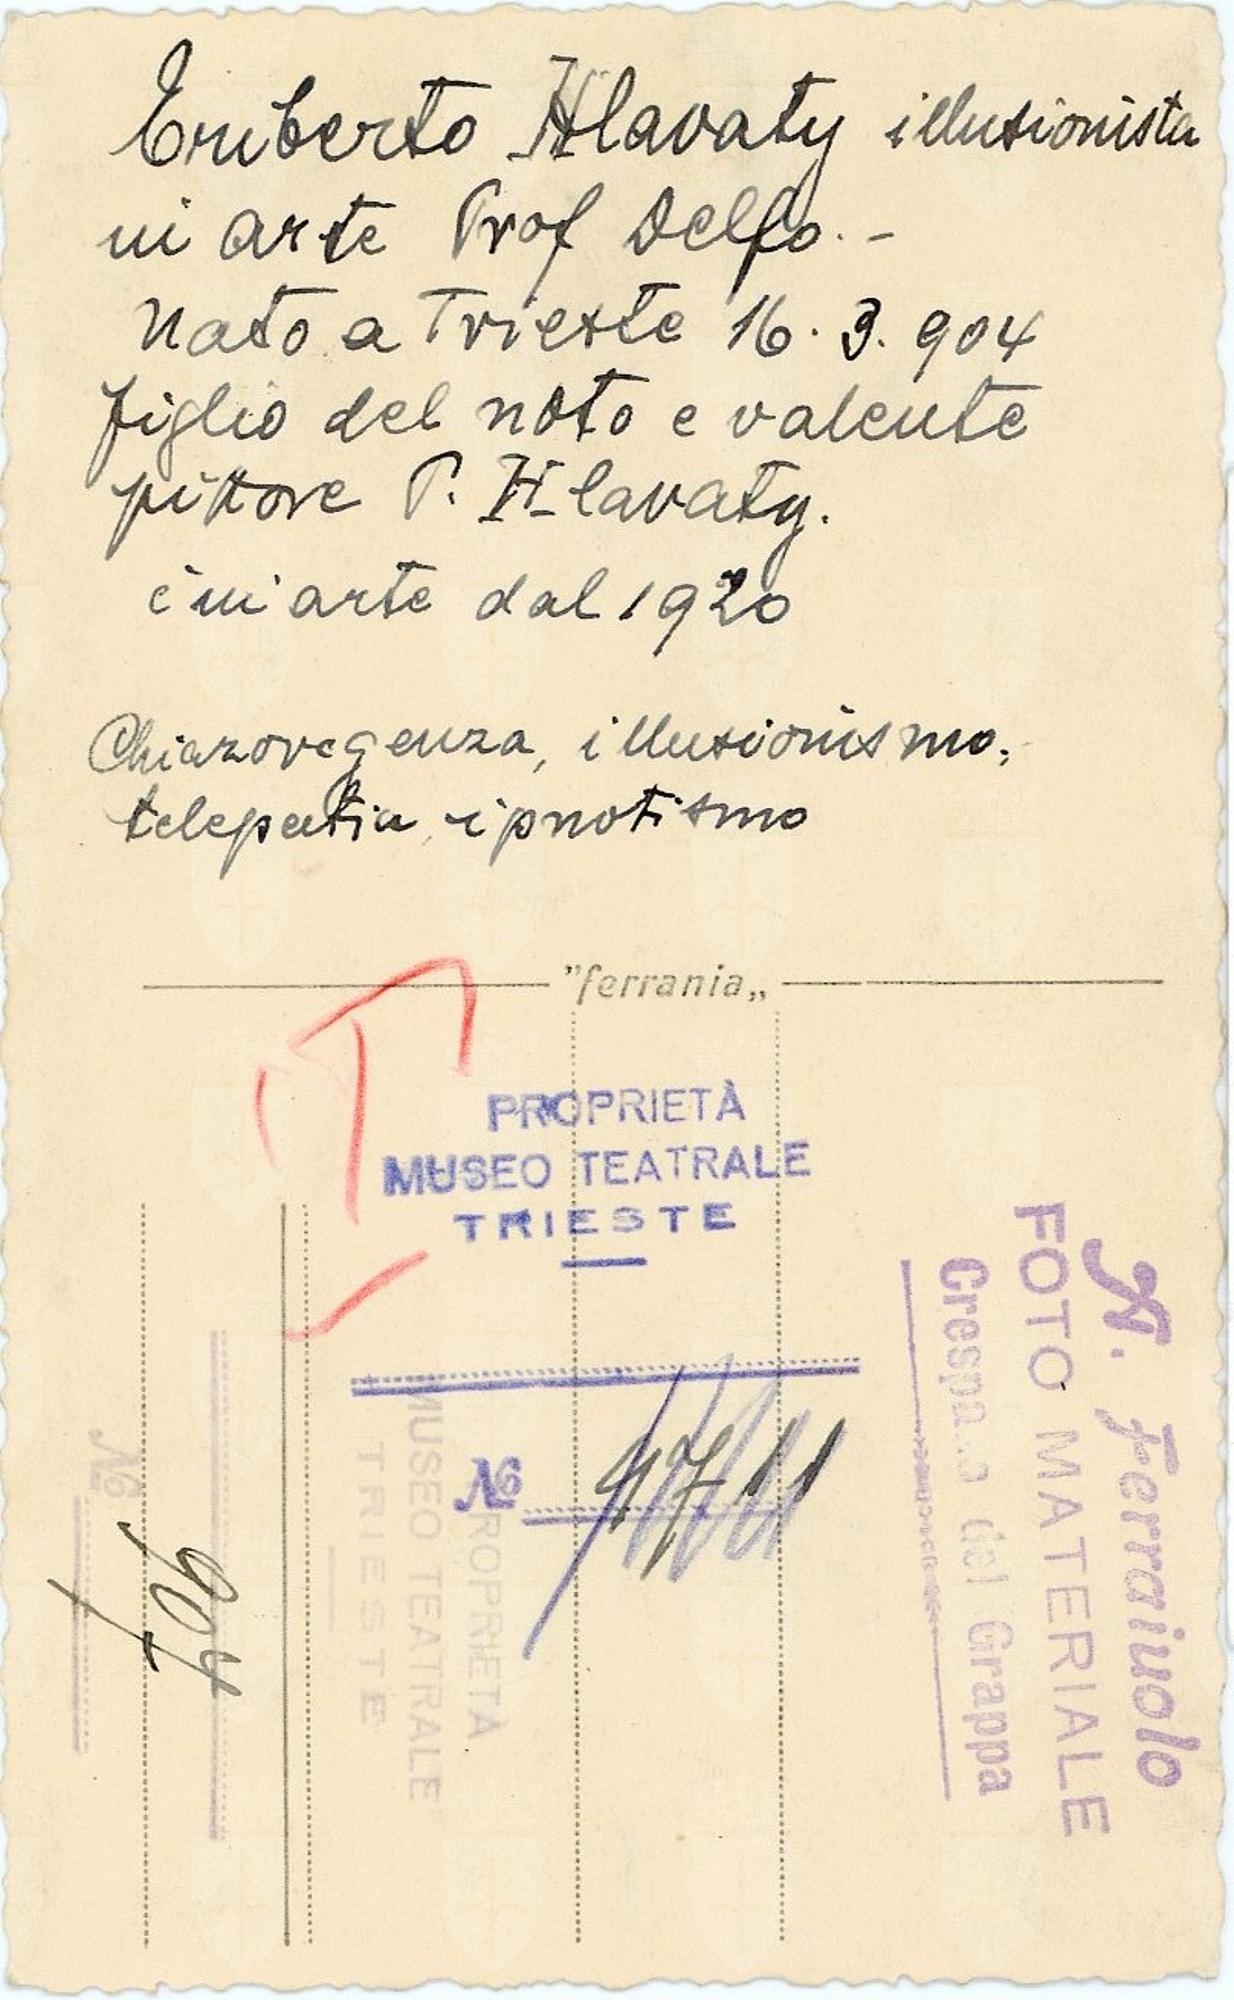 Eriberto Hlavaty illusionista
in arte Prof Delfo. -
nato a Trieste 16. 3. 904
figlio del noto e valente
pittore P. Hlavaty.
è in arte dal 1920
Chiaroveggenza, illusionismo,
telepatia, ipnotismo
"ferrania„
PROPRIETÀ
MUSEO TEATRALE
TRIESTE
№ 4711
N. Ferraiuolo
FOTO MATERIALE
Crespano del Grappa
PROPRIETÀ
MUSEO TEATRALE
TRIESTE
№